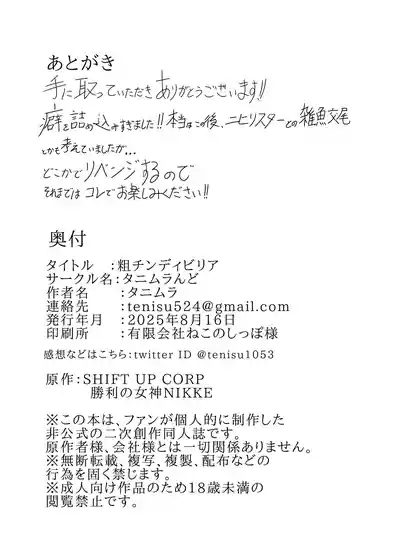 あとがき
手に取っていただきありがとうございます!!
癖を詰め込みすぎました!!本当はこの後、ニヒリスターとの雑魚交尾
とかも考えていましたが…
どこかでリベンジするので
それまではコレでお楽しみください!!
奥付
タイトル　：粗チンディビリア
サークル名：タニムラんど
作者名　　：タニムラ
連絡先　　：tenisu524@gmail.com
発行年月　：2025年8月16日
印刷所　　：有限会社ねこのしっぽ様
感想などはこちら：twitter ID @tenisu1053
原作：SHIFT UP CORP
勝利の女神NIKKE
※この本は、ファンが個人的に制作した
非公式の二次創作同人誌です。
原作者様、会社様とは一切関係ありません。
※無断転載、複写、複製、配布などの
行為を固く禁じます。
※成人向け作品のため18歳未満の
閲覧禁止です。